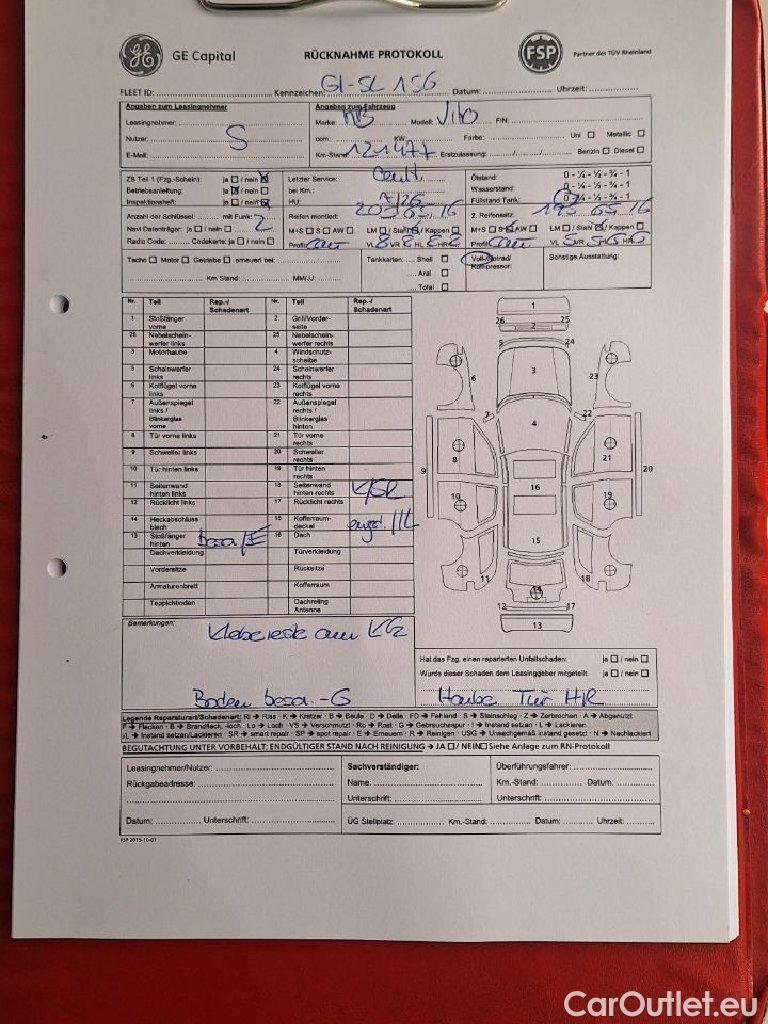 GE Capital RÜCKNAHME PROTOKOLL FSP Partner des TÜV Rheinland
FLEET ID: Kennzeichen GI-SL 156 Datum: Uhrzeit:
Angaben zum Leasingnehmer Angaben zum Fahrzeug
Leasingnehmer: Marke: MB Modell: Vito FIN:
Nutzer: S ccm: KW Farbe: Uni Metallic
E-Mail: Km-Stand: 121477 Erstzulassung: Benzin Diesel
ZB Teil 1 (Fzg.-Schein): ja / nein Letzter Service: Ölstand: 0 - ¼ - ½ - ¾ - 1
Betriebsanleitung: ja / nein bei Km.: Wasserstand: 0 - ¼ - ½ - ¾ - 1
Inspektionsheft: ja / nein HU: Füllstand Tank: 0 - ¼ - ½ - ¾ - 1
Anzahl der Schlüssel: mit Funk: 2 Reifen montiert: 205 65 16 2. Reifensatz: 195 65 16
Navi Datenträger: ja / nein M+S S AW LM / Stahl / Kappen M+S S AW LM / Stahl / Kappen
Radio Code: Codekarte: ja / nein Profil: VL 8 VR 8 HL 8 HR 8 Profil: VL 5 VR 5 HL 5 HR 5
Tacho Motor Getriebe erneuert bei: Tankkarten: Shell Voll-/Notrad/ Sonstige Ausstattung:
Aral Kompressor:
Km Stand: MM/JJ: Total
Nr. Teil Rep.-/ Schadenart Nr. Teil Rep.-/ Schadenart
1 Stoßfänger vorne 2 Grill/Vorderseite
26 Nebelscheinwerfer links 25 Nebelscheinwerfer rechts
3 Motorhaube 4 Windschutzscheibe
5 Scheinwerfer links 24 Scheinwerfer rechts
6 Kotflügel vorne links 23 Kotflügel vorne rechts
7 Außenspiegel links / Blinkerglas vorne 22 Außenspiegel rechts / Blinkerglas hinten
8 Tür vorne links 21 Tür vorne rechts
9 Schweller links 20 Schweller rechts
10 Tür hinten links 19 Tür hinten rechts
11 Seitenwand hinten links 18 Seitenwand hinten rechts K/SR
12 Rücklicht links 17 Rücklicht rechts
14 Heckabschluss blech 15 Kofferraumdeckel
13 Stoßfänger hinten besch/E 16 Dach
Dachverkleidung Türverkleidung
Vordersitze Rücksitze
Armaturenbrett Kofferraum
Teppichboden Dachreling Antenne
1
26 2 25
5 24
6 3 23
7 22
4
8 21
9 20
10 16 19
15
11 14 18
12 17
13
Bemerkungen: Klebereste am
Boden besch.-G
Hat das Fzg. einen reparierten Unfallschaden: ja / nein
Wurde dieser Schaden dem Leasinggeber mitgeteilt: ja / nein
Haube Tür HR
Legende Reparaturart/Schadenart: RI → Riss - K → Kratzer - B → Beule - D → Delle - FD → Fehlend - S → Steinschlag - Z → Zerbrochen - A → Abgenutzt
F → Flecken - B → Brandfleck, -loch - Lo → Loch - VS → Verschmutzt - Ro → Rost - G → Gebrauchsspur - I → Instand setzen - L → Lackieren
I/L → Instand setzen/Lackieren - SR → smart repair - SP → spot repair - E → Erneuern - R → Reinigen - USG → Unsachgemäß instand gesetzt - N → Nachlackiert
BEGUTACHTUNG UNTER VORBEHALT; ENDGÜLTIGER STAND NACH REINIGUNG → JA / NEIN Siehe Anlage zum RN-Protokoll
Leasingnehmer/Nutzer: Sachverständiger: Überführungsfahrer:
Rückgabeadresse: Name: Km.-Stand: Datum:
Unterschrift: Unterschrift:
Datum: Unterschrift: ÜG Stellplatz: Km.-Stand: Datum: Uhrzeit:
FSP 2015-10-01
CarOutlet.eu